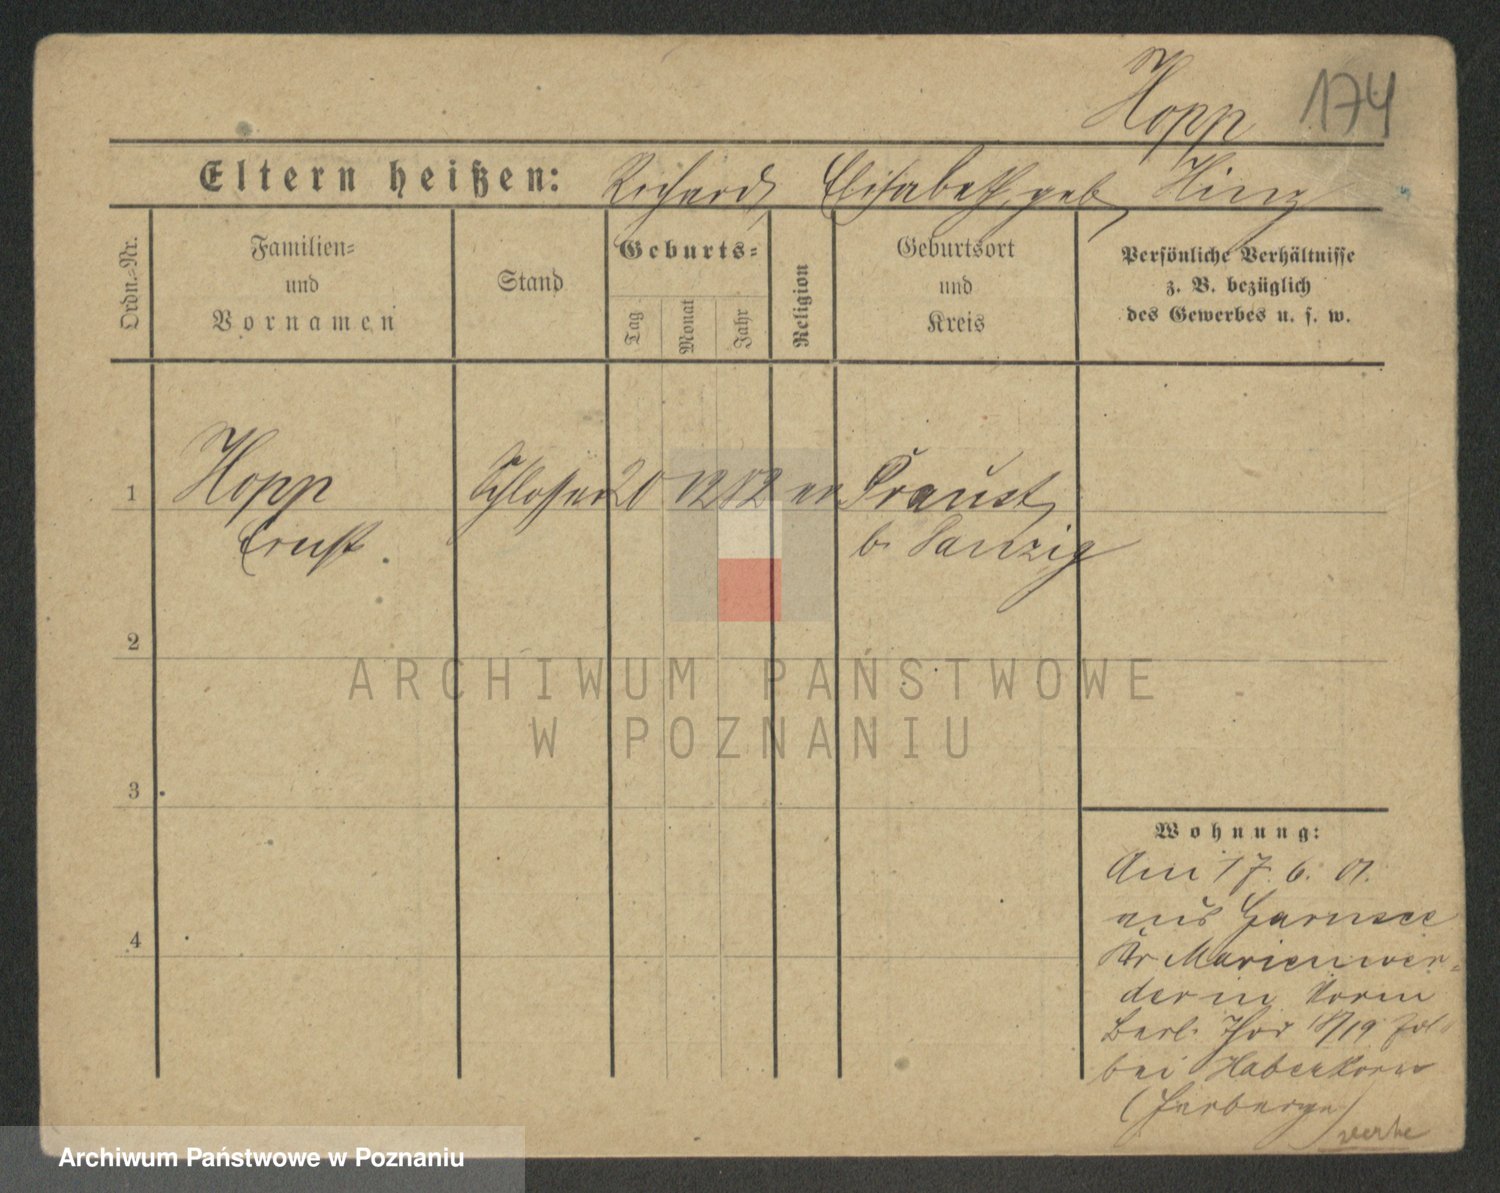 Hopp 174
Eltern heißen: Richard Elisabeth geb Hinz
Ordn.-Nr.
Familien-
und
Vornamen
Stand
Geburts-
Tag
Monat
Jahr
Religion
Geburtsort
und
Kreis
Persönliche Verhältnisse
z. B. bezüglich
des Gewerbes u. s. w.
1 Hopp Schlosser 20 12 82 ev Praust
Ernst. b. Danzig
2
ARCHIWUM PAŃSTWOWE
W POZNANIU
3
Wohnung:
Am 17. 6. 01.
aus Garnsee
Kr Marienwer-
der in
Berl. Thor 18/19
bei Haberkorn
(Herberge)
4
Archiwum Państwowe w Poznaniu